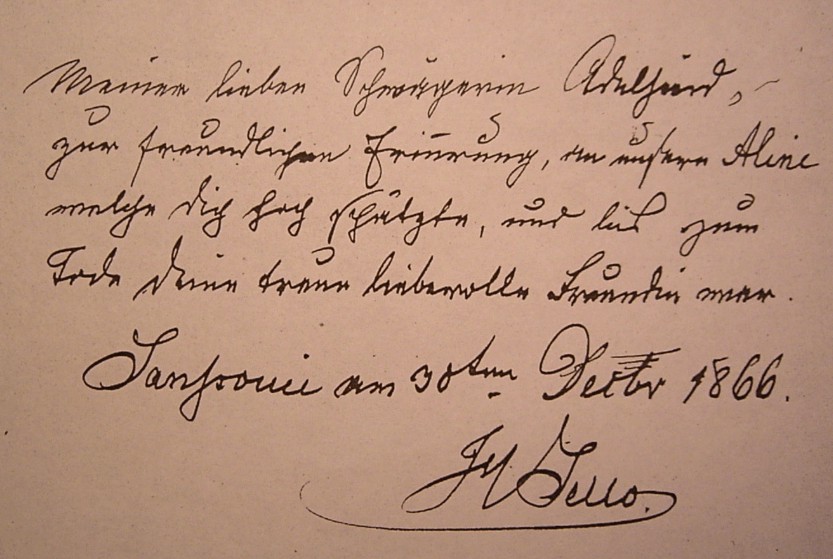 Meiner lieben Schwägerin Adelheid,
zur freundlichen Erinnrung, an unsere Aline
welche dich hoch schätzte, und bis zum
Tode deine treue liebevolle Freundin war.
Sanssouci am 30ten Decbr 1866.
Sello.